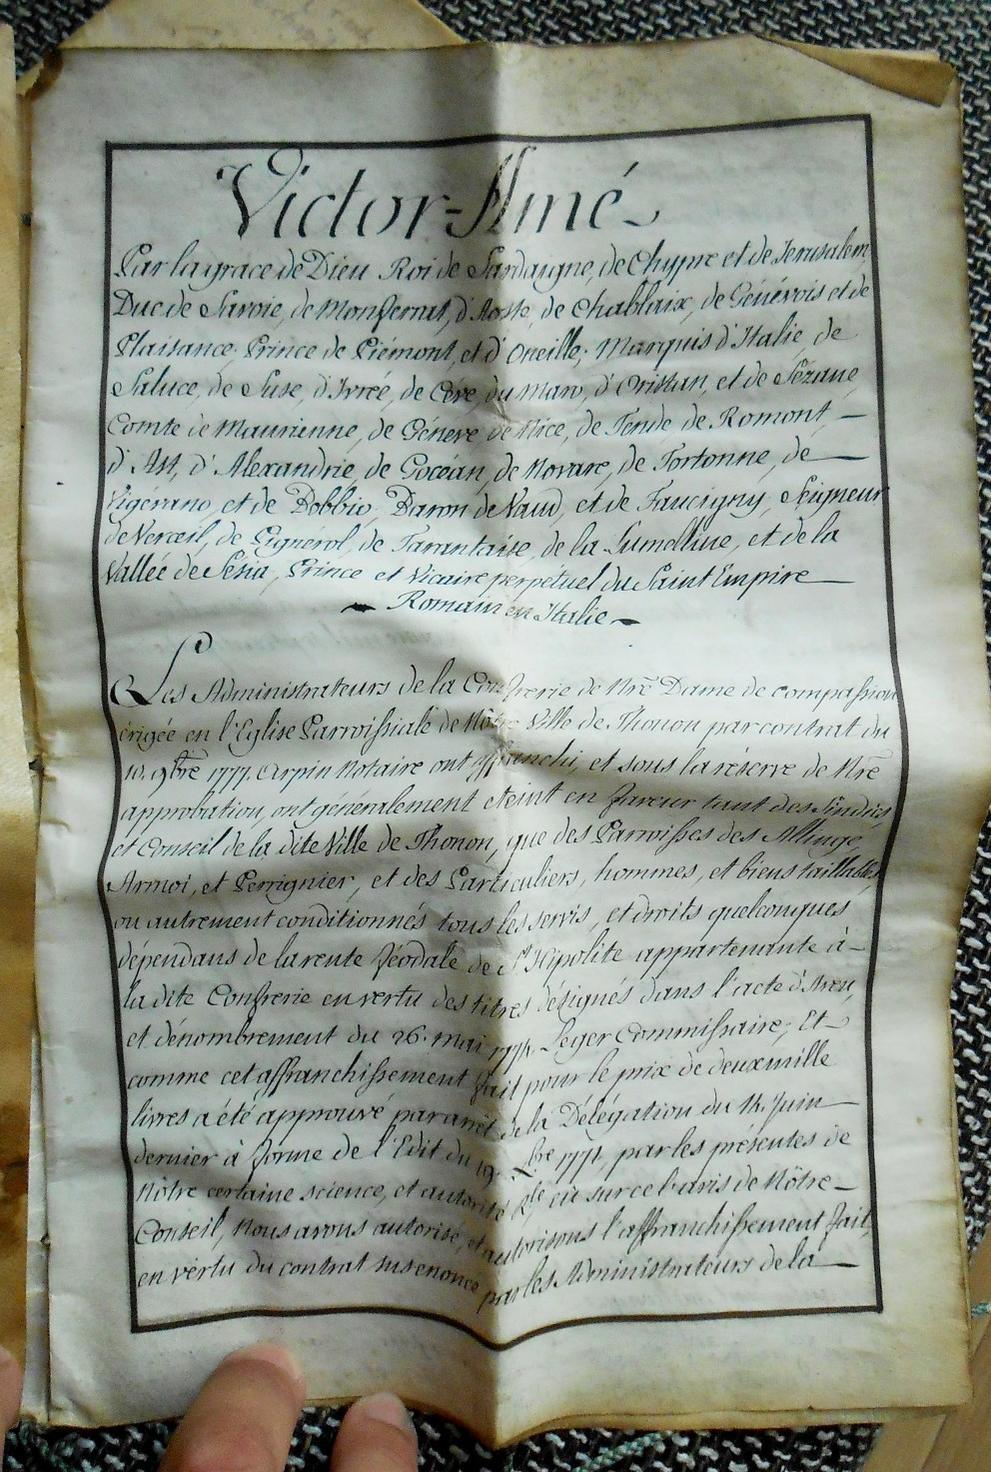 Victor-Amé
Par la grace de Dieu Roi de Sardaigne, de Chypre et de Jerusalem,
Duc de Savoie, de Monferrat, d'Aoste, de Chablaix, de Génévois et de
Plaisance; Prince de Piémont, et d'Oneille; Marquis d'Italie, de
Saluce, de Suse, d'Ivrée, de Céve, du Maro, d'Oristan, et de Sézane,
Comte de Maurienne, de Géneve de Nice, de Tende, de Romont,
d'Ast, d'Alexandrie, de Gocéan, de Novare, de Tortonne, de
Vigévano, et de Bobbio; Baron de Vaud, et de Faucigny, Seigneur
de Verceil, de Pignérol, de Tarantaise, de la Lumelline, et de la
Vallée de Sésia, Prince et Vicaire perpétuel du Saint Empire
Romain en Italie
Les Administrateurs de la Confrerie de Nre Dame de compassion
érigée en l'Eglise Parroissiale de Nôtre Ville de Thonon par contrat du
10. 9bre 1777. Arpin Notaire ont affranchi, et sous la réserve de Nre
approbation, ont généralement eteint en faveur tant des Sindics
et Conseil de la dite Ville de Thonon, que des Parroisses des Allinge,
Armoi, et Perrignier, et des Particuliers, hommes, et biens taillables,
ou autrement conditionnés tous les servis, et droits quelconques
dépendans de la rente féodale de St Hipolite appartenante à
la dite Confrerie en vertu des titres désignés dans l'acte d'aveu,
et dénombrement du 26. mai Leger Commissaire; Et
comme cet affranchissement fait pour le prix de deux mille
livres a été approuvé par arrêt de la Délégation du Juin
dernier à forme de l'Edit du 19. Xbre 1771. par les présentes de
Nôtre certaine science, et autorité Rle eû sur ce l'avis de Nôtre
Conseil, Nous avons autorisé, et autorisons l'affranchissement fait,
en vertu du contrat susenoncé par les Administrateurs de la